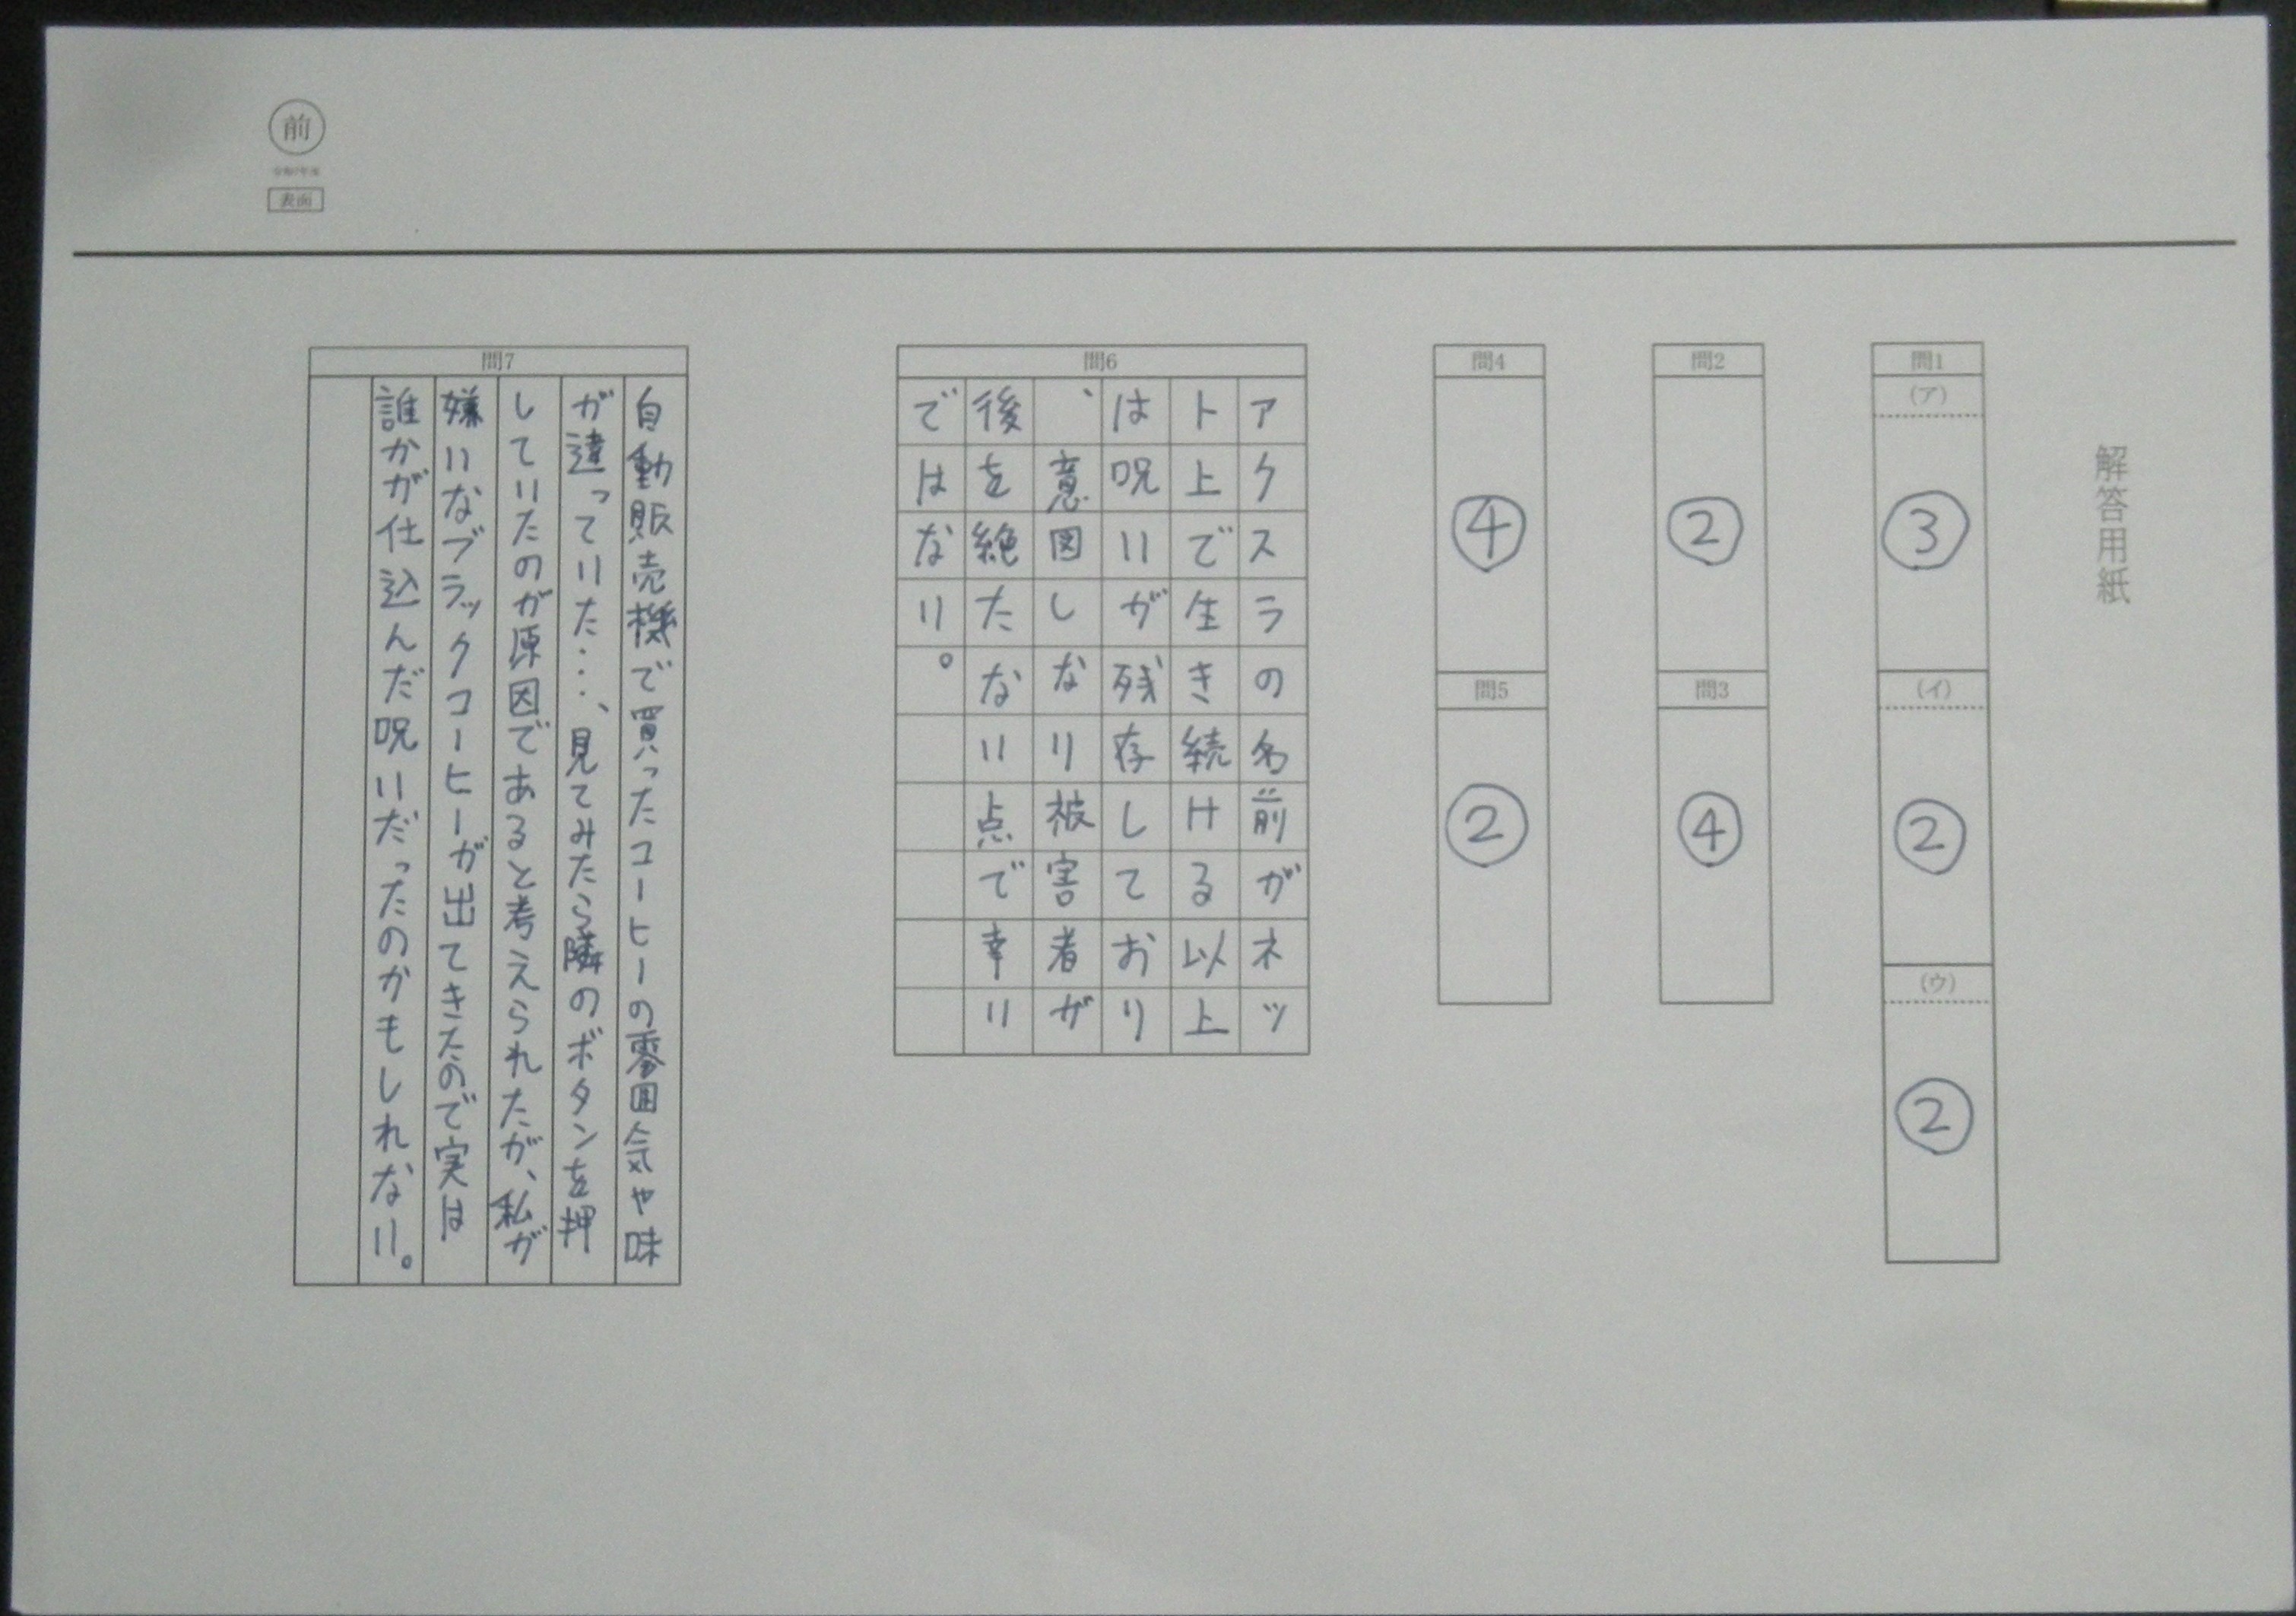 解答用紙
問1
(ア)
③
(イ)
②
(ウ)
②
問2
②
問3
④
問4
④
問5
②
問6
アクスラの名前がネッ
ト上で生き続ける以上
は呪いが残存しており
、意図しなり被害者が
後を絶たない点で幸い
ではない。
問7
自動販売機で買ったコーヒーの雰囲気や味
が違っていた…、見てみたら隣のボタンを押
していたのが原因であると考えられたが、私が
嫌いなブラックコーヒーが出てきたので実は
誰かが仕込んだ呪いだったのかもしれない。
前
表面